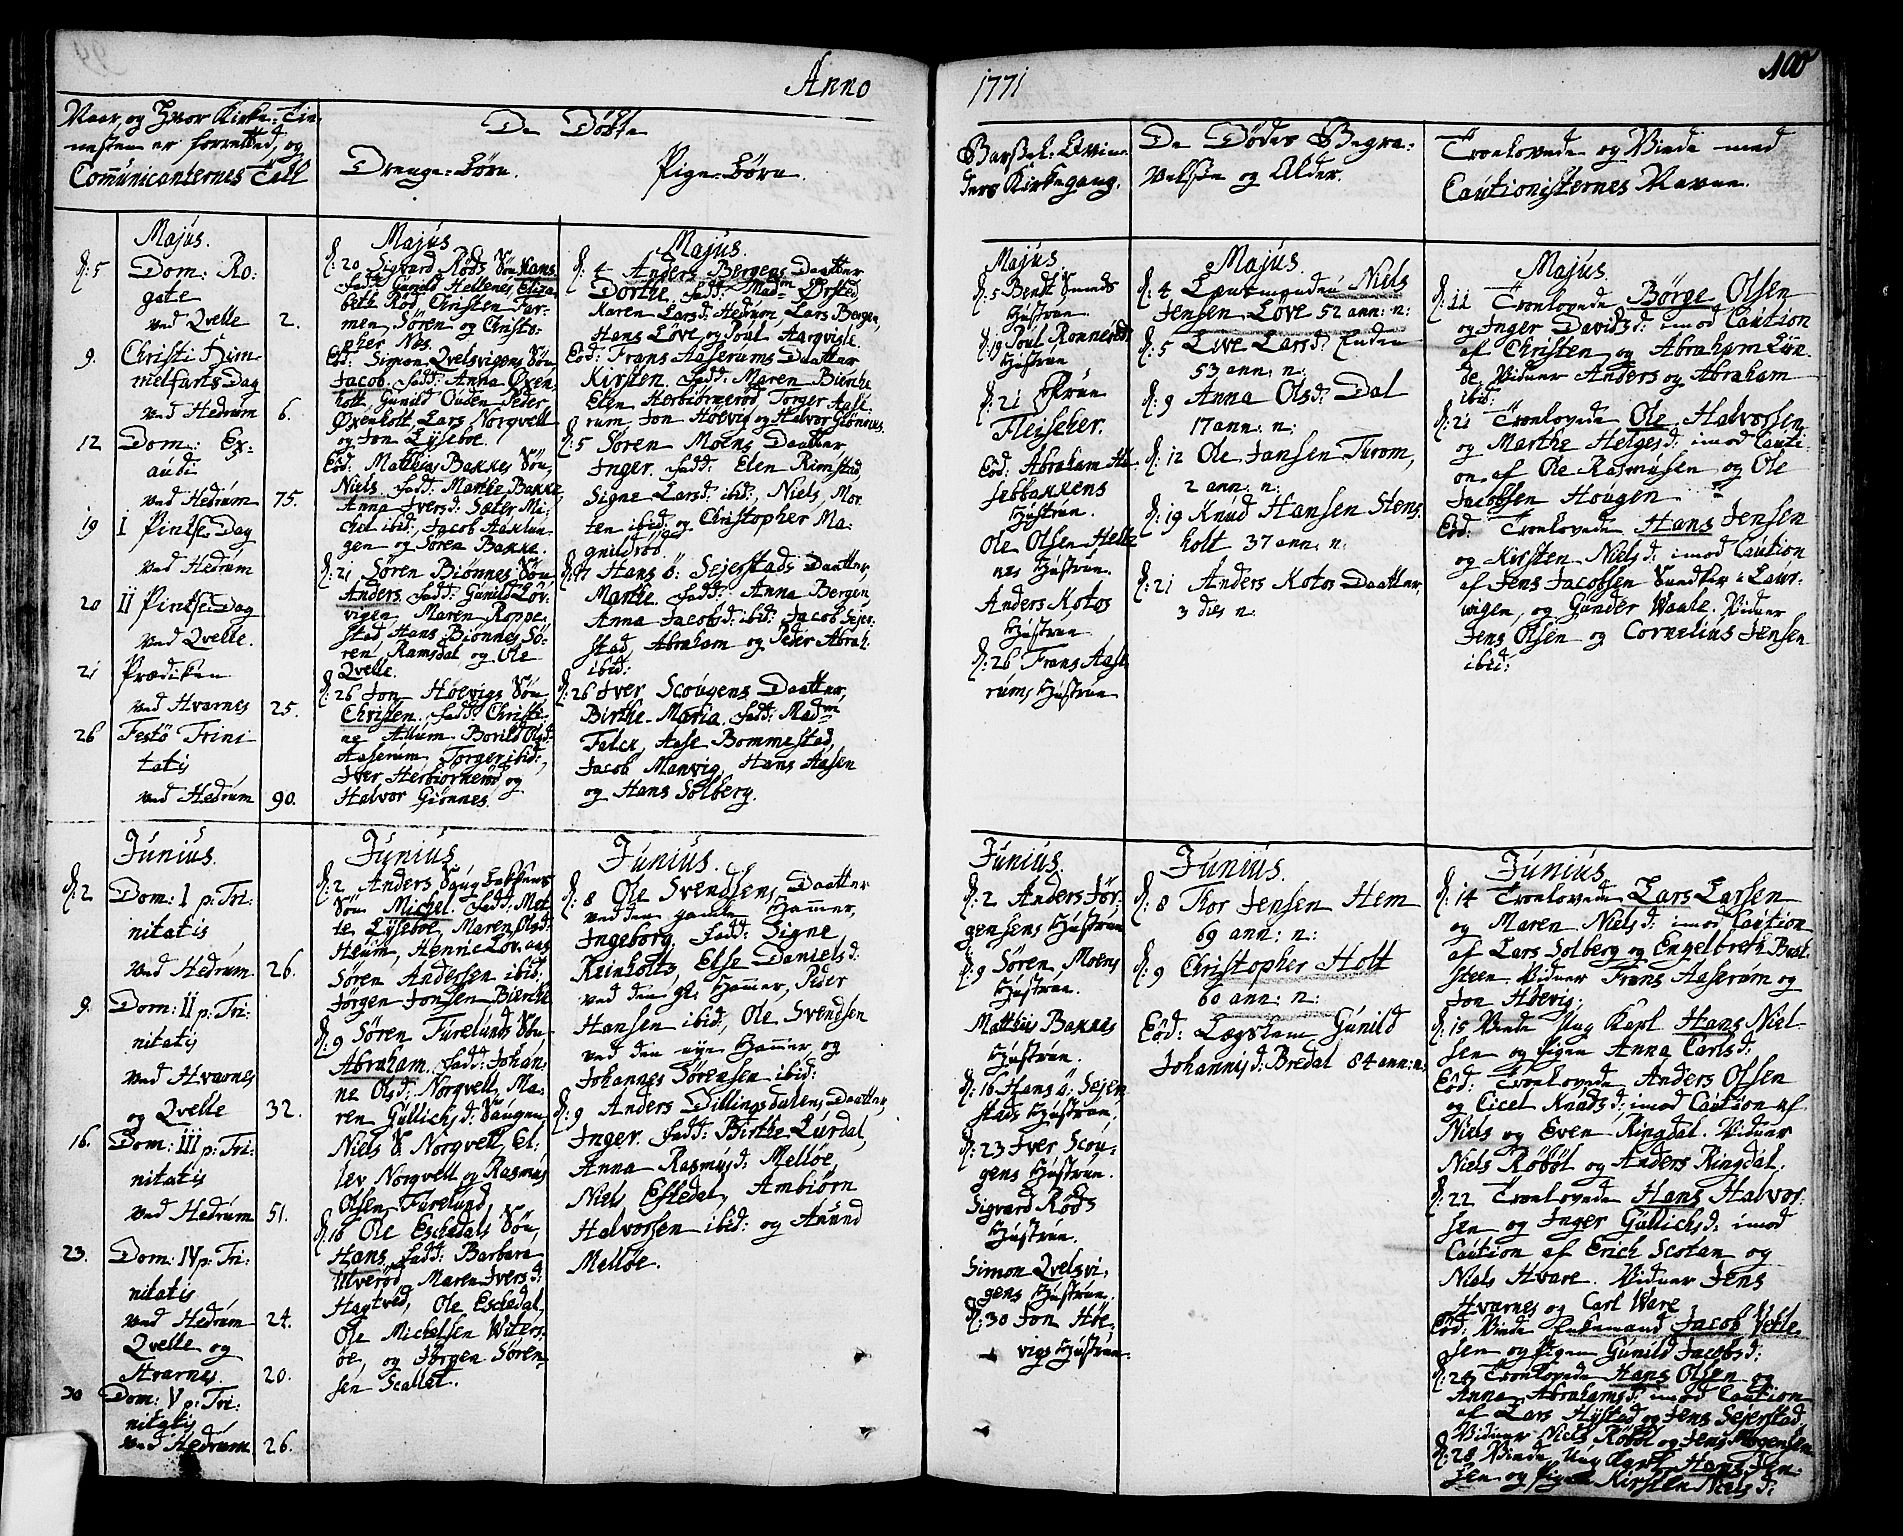 Anno
1771
100
Naar og Hvor Kirke-Tie-
nesten er forretted, og
Communicanternes Tall
De Døbte
Drenge-børn.
Pige-børn.
Barsel-Qvin-
ders Kirkegang.
De Dødes Begra-
velse og Alder.
Troelovede og Viede med
Cautionisternes Navne.
Majus.
d: 5 Dom: Ro-
gate
ved Qvelle 2.
9. Christi Him-
melfarts Dag
ved Hedrum 6.
12 Dom: Ex-
audi
ved Hedrum 75.
19 I Pintse Dag
ved Hedrum
20 II Pintse Dag
ved Qvelle.
21 Prædiken
ved Hvarnes 25.
26 Festo Trini
tatis
ved Hedrum 90.
Majus.
d: 20 Sigvard Røds Søn Hans
fadd: Gunild Hellenes, Eliza-
beth Rød, Christen Far-
men, Søren og Christo-
pher Nes.
Eod: Simon Qvelsvigens Søn
Jacob. fadd: Anna Øxen-
holt, Gunild Ouden, Peder
Øxenholt, Lars Norqvell
og Jon Lyseboe.
Eod: Matthias Bakkes Søn,
Niels. fadd: Marthe Bakke,
Anna Iversd: Sæter, Mi-
chel ibid:, Jacob Aaklun-
gen og Søren Bakke.
d: 21 Søren Biønnes Søn
Anders. fadd: Gunild Løv-
vigen, Maren Roppe-
stad, Hans Biønnes, Sø-
ren Ramsdal og Ole
Qvelle.
d: 26 Jon Høevigs Søn
Christen. fadd: Christi-
ne Allum, Borild Olsd:
Aaserum, Torger ibid:,
Iver Herbiørnerød og
Halvor Giønnes.
Majus.
d: 4 Anders Bergens Daatter
Dorthe. fadd: Madm Ørsted,
Karen Larsd: Hedrum, Lars Bergen,
Hans Løve og Poul Aarqvisle.
Eod: Frans Aaserums Daatter
Kirsten. fadd: Maren Biercke
Elen Herbiørnerød, Torger Aase-
rum, Jon Høevig og Halvor Giønnes.
d: 5 Søren Moens Daatter
Inger. fadd: Elen Rimstad,
Signe Larsd: ibid:, Niels, Mor-
ten ibid: og Christopher Ma-
gnildrød.
d: 17 Hans Ø: Sejerstads Daatter,
Marthe. fadd: Anna Bergen
Anna Jacobsd: ibid: Jacob Sejer-
stad, Abraham og Peder Abrah:
ibid:
d: 26 Iver Scougens Daatter,
Birthe Maria. fadd: Madm
Falck, Aase Bommestad,
Jacob Manvig, Hans Aasen
og Hans Solberg.
Majus.
d: 5 Bendt Sunds
Hustrue
d: 19 Poul Ronnerøds
Hustrue
d: 21 Frue
Fleischer.
Eod: Abraham Ha-
sebbakkens
Hustrue.
Ole Olsen Helle-
nes Hustrue
Anders Kotos
Hustrue
d: 26 Frans Aase
rums Hustrue
Majus.
d: 4 Lænsmanden Niels
Jensen Løve 52 ann: n:
d: 5 Live Larsd: Enden
53 ann: n:
d: 9 Anna Olsd: Dal
17 ann: n:
d: 12 Ole Jansen Throm,
2 ann: n:
d: 19 Knud Hansen Stens-
holt 37 ann: n:
d: 21 Anders Kotos Daatter,
3 dies n:
Majus.
d: 11 Troelovede Børge Olsen
og Inger Davidsd: imod Caution
af Christen og Abraham Lun-
de. Vidner Anders og Abraham
ibid:
d: 21 Troelovede Ole Halvorsen
og Marthe Helgesd: imod Cauti-
on af Ole Rasmusen og Ole
Jacobsen Hougen
Eod: Troelovede Hans Jensen
og Kirsten Nielsd: imod Caution
af Jens Jacobsen Sundker i Laur-
vigen, og Gunder Waale. Vidner
Jens Olsen og Cornelius Jensen
ibid:
Junius.
d: 2 Dom: I p: Tri-
nitatis
ved Hedrum 26.
9. Dom: II p: Tri-
nitatis
ved Hvarnes
og Qvelle 32.
16. Dom: III p: Tri-
nitatis
ved Hedrum 51.
23. Dom: IV p: Tri-
nitatis
ved Hedrum 24.
Qvelle og
Hvarnes. 20.
30 Dom: V p: Tri-
nitatis
ved Hedrum 26.
Junius.
d: 2 Anders
Søn Michel. fadd: Met-
te Lyseboe, Maren Olsd:
Heium, Henric Lovaas
Søren Andersen ibid:,
Jørgen Jonsen Biercke
d: 9 Søren Furelunds Søn
Abraham. fadd: Johan-
ne Olsd: Norqvell, Ma-
ren Gullichsd: Haugen,
Niels S Norqvell, El-
lev Norqvell og Rasmus
Olsen Furelund.
d: 16 Ole Eschedals Søn,
Hans, fadd: Barbara
Ulverød, Maren Iversd:
Hagtved, Ole Eschedal,
Ole Michelsen Witers-
øe, og Jørgen Søren-
sen Scallet.
Junius.
d: 8 Ole Svendsens Daatter
ved den gamle Hammer,
Ingeborg. fadd: Signe
Reinholts, Else Danielsd:
ved den gl: Hamer, Peder
Hansen ibid:, Ole Svendsen
ved den nye Hamer og
Johannes Sørensen ibid:
d: 9 Anders Dillingsdalens Daatter,
Inger. fadd: Birthe Lurdal,
Anna Rasmusd: Melløe,
Niels Estedal, Ambiørn
Halvorsen ibid: og Anund
Melløe.
Junius.
d: 2 Anders Jør-
gensens Hustrue
d: 9 Søren Moens
Hustrue.
Matthis Bakkes
Hustrue.
d: 16 Hans Ø: Sejer-
stads Hustrue,
d: 23 Iver Scou-
gens Hustrue.
Sigvard Røds
Hustrue.
Simon Qvelsvi-
gens Hustrue.
d: 30 Jon Høe-
vigs Hustrue.
Junius.
d: 8 Thor Jensen Hem
69 ann: n:
d: 9 Christopher Holt
60 ann: n:
Eod: Lægslem Gunild
Johannisd: Bredal 84 ann: n:
Junius.
d: 14 Troelovede Lars Larsen
og Maren Nielsd: imod Caution
af Lars Solberg og Engelbreth
steen. Vidner Frans Aaserum og
Jon Høevig.
d: 15 Viede Ung Karl Hans Niel-
sen og Pigen Anna Carlsd:
Eod: Troelovede Anders Olsen
og Cicel Knudsd: imod Caution af
Niels og Even Ringdal. Vidner
Niels Røbøl og Anders Ringdal.
d: 22 Troelovede Hans Halvor-
sen og Inger Gullichsd: imod
Caution af Erich Scotan og
Niels Hvare. Vidner Jens
Hvarnes og Carl Ware
Eod: Viede Enkemand Jacob Vetle-
sen og Pigen Gunild Jacobsd:
d: 24 Troelovede Hans Olsen og
Anna Abrahamsd: imod Caution
af Lars Hystad og Jens Sejerstad.
Vidner Niels Røbøl og Jens Mogensen
d: 28 Viede Ung Karl Hans Jen-
sen og Pigen Kirsten Nielsd: